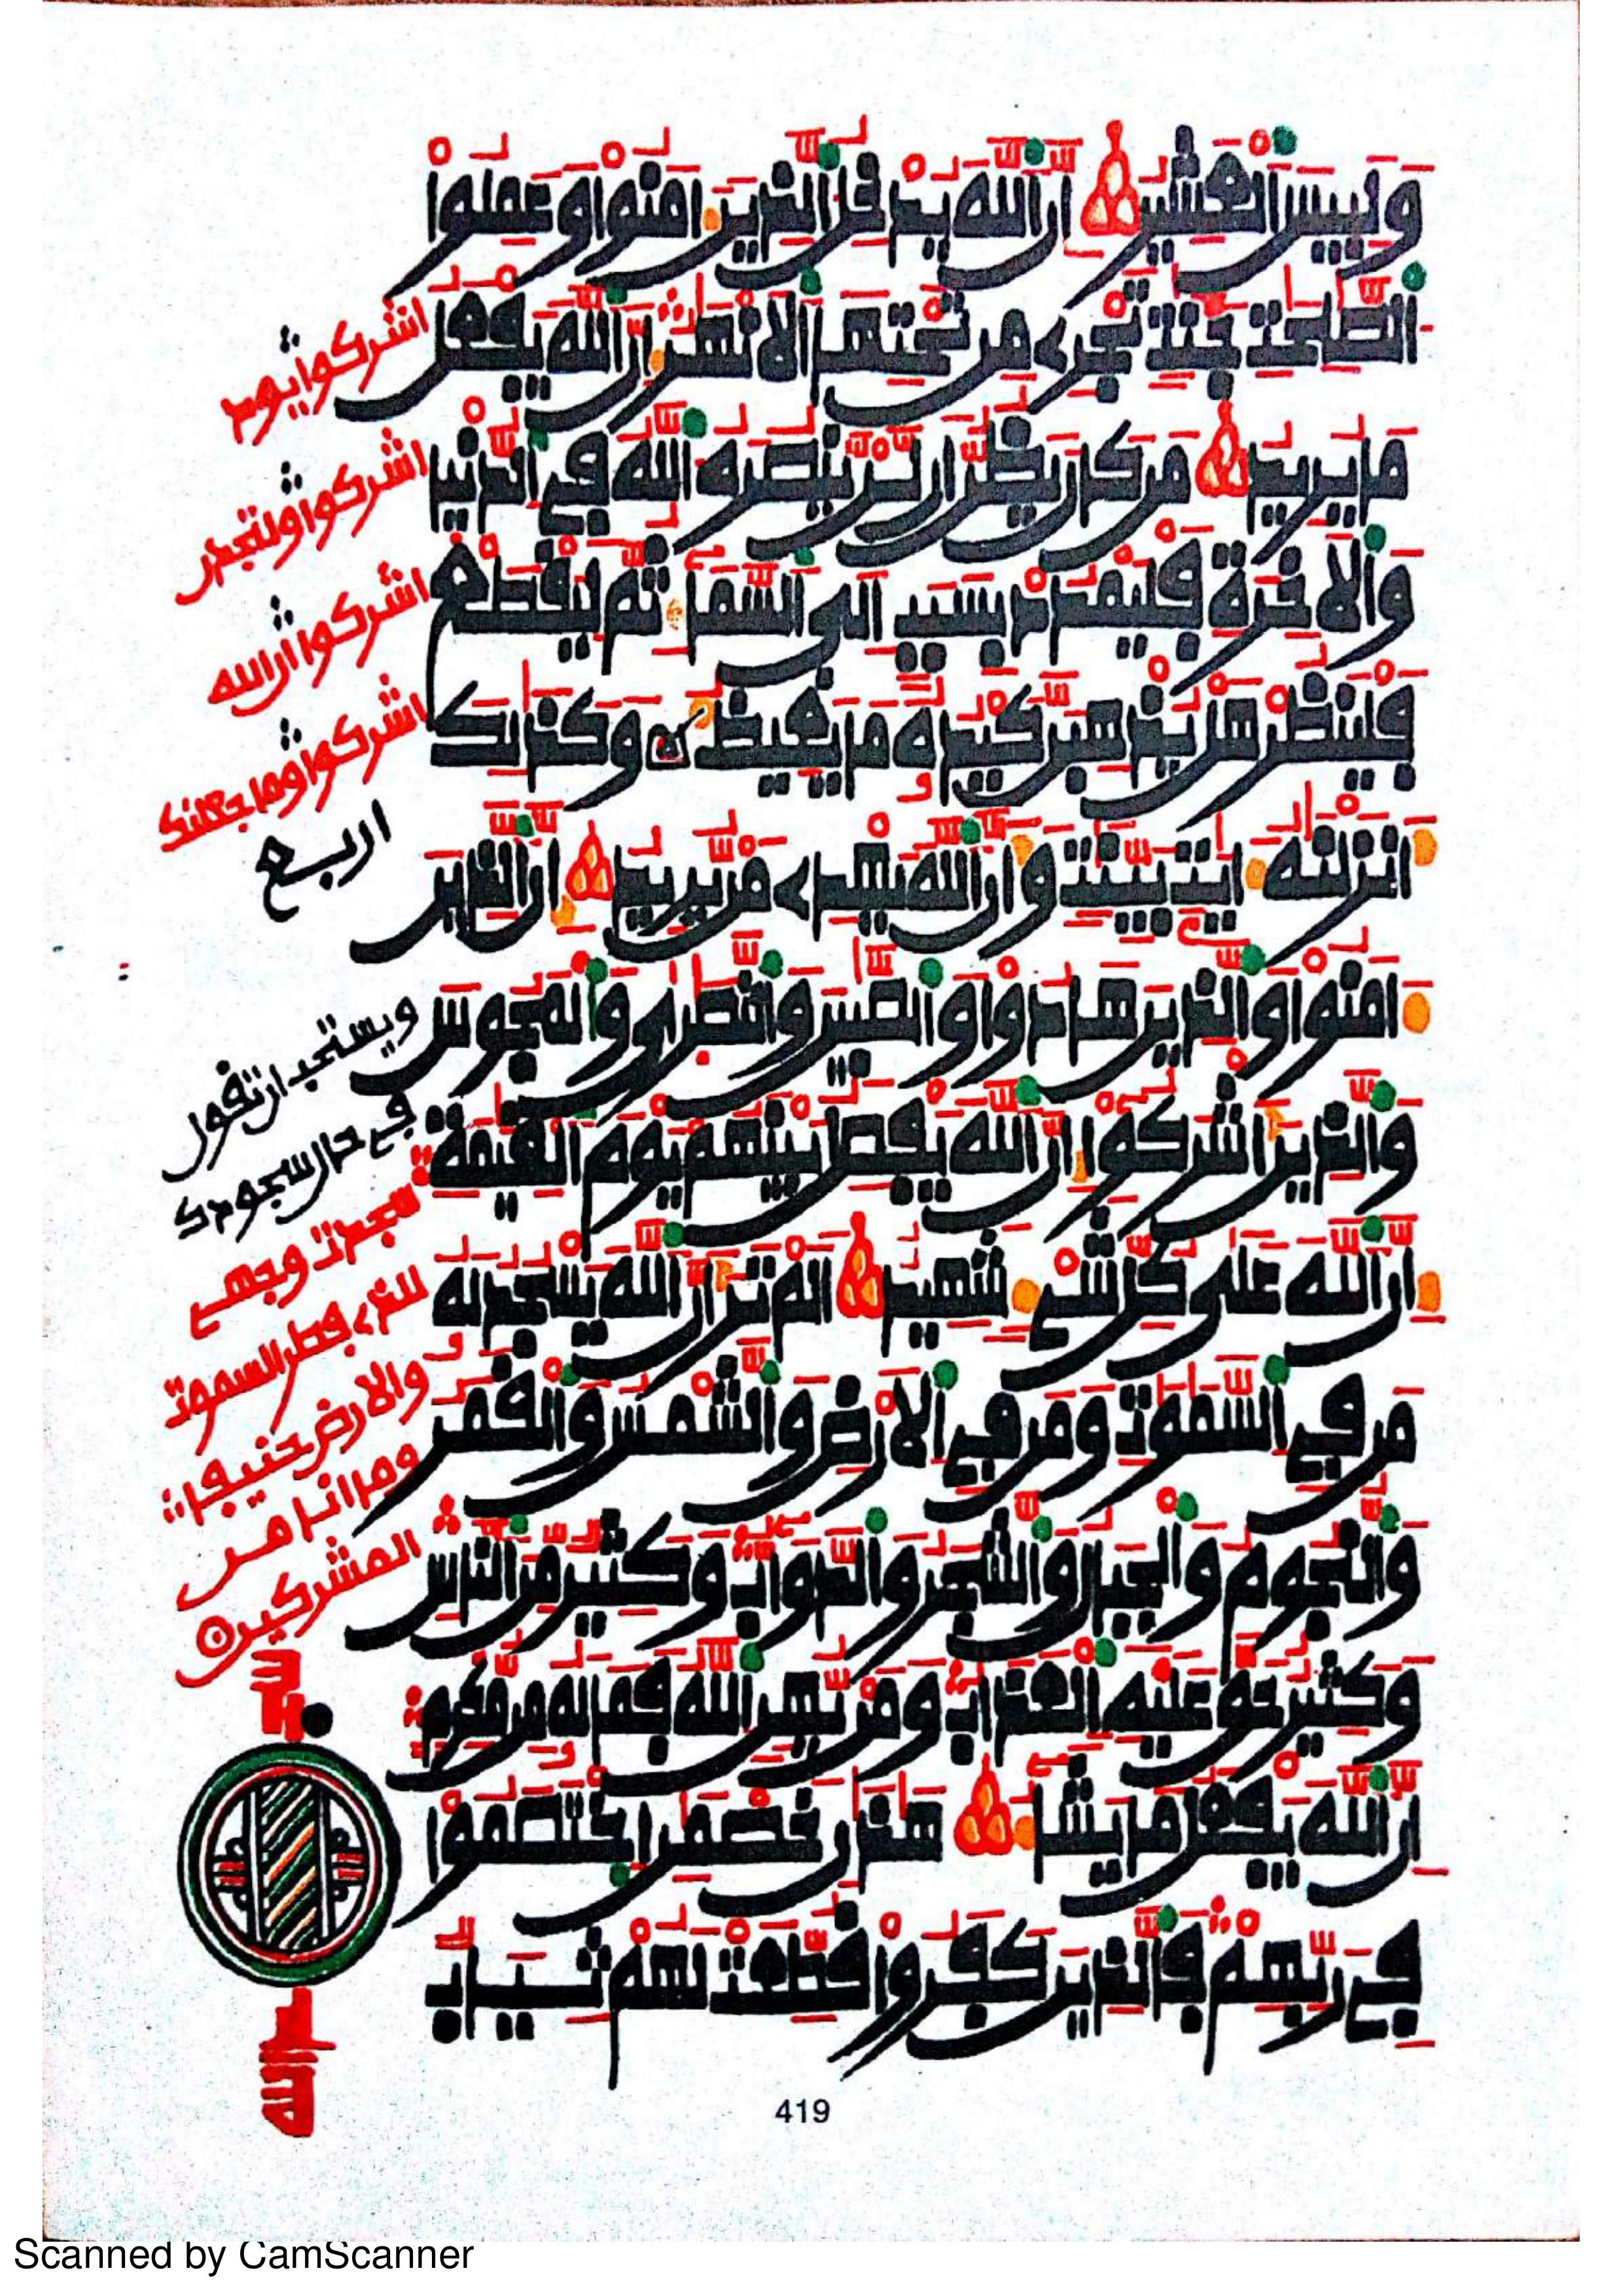 وَلَبِيسَ ٱلْعَشِيرُ إِنَّ ٱللَّهَ يُدْخِلُ ٱلَّذِينَ ءَامَنُوا۟ وَعَمِلُوا۟
ٱلصَّٰلِحَٰتِ جَنَّٰتٍ تَجْرِے مِن تَحْتِهَا ٱلَانْهَٰرُ إِنَّ ٱللَّهَ يَفْعَلُ
مَا يُرِيدُ مَن كَانَ يَظُنُّ أَن لَّنْ يَّنصُرَهُ ٱللَّهُ فِے ٱلدُّنْيَا
وَٱلَاخِرَةِ فَلْيَمْدُدْ بِسَبَبٍ اِلَى ٱلسَّمَآءِ ثُمَّ لِيَقْطَعْ
فَلْيَنظُرْ هَلْ يُذْهِبَنَّ كَيْدُهُۥ مَا يَغِيظُ وَكَذَٰلِكَ
أَنزَلْنَٰهُ ءَايَٰتٍ بَيِّنَٰتٍ وَأَنَّ ٱللَّهَ يَهْدِے مَنْ يُّرِيدُ إِنَّ ٱلَّذِينَ
ءَامَنُوا۟ وَٱلَّذِينَ هَادُوا۟ وَٱلصَّٰبِينَ وَٱلنَّصَٰرَىٰ وَٱلْمَجُوسَ
وَٱلَّذِينَ أَشْرَكُوٓا۟ إِنَّ ٱللَّهَ يَفْصِلُ بَيْنَهُمْ يَوْمَ ٱلْقِيَٰمَةِ
إِنَّ ٱللَّهَ عَلَىٰ كُلِّ شَےْءٍ شَهِيدٌ اَلَمْ تَرَ أَنَّ ٱللَّهَ يَسْجُدُ لَهُۥ
مَن فِے ٱلسَّمَٰوَٰتِ وَمَن فِے ٱلَارْضِ وَٱلشَّمْسُ وَٱلْقَمَرُ
وَٱلنُّجُومُ وَٱلْجِبَالُ وَٱلشَّجَرُ وَٱلدَّوَآبُّ وَكَثِيرٌ مِّنَ ٱلنَّاسِ
وَكَثِيرٌ حَقَّ عَلَيْهِ ٱلْعَذَابُ وَمَنْ يُّهِنِ ٱللَّهُ فَمَا لَهُۥ مِن مُّكْرِمٍ
اِنَّ ٱللَّهَ يَفْعَلُ مَا يَشَآءُ هَٰذَٰنِ خَصْمَٰنِ ٱخْتَصَمُوا۟
فِے رَبِّهِمْ فَٱلَّذِينَ كَفَرُوا۟ قُطِّعَتْ لَهُمْ ثِيَابٌ
اشركوا يود
اشركوا ولتجدن
اشركوا ان الله
اشركوا وما جعلنك
اربع
ويستحب ان تقول
في حال سجودك
سجدت وجهي
للذي فطر السموت
والارض حنيفا
وما انا من
المشركين
419
Scanned by CamScanner